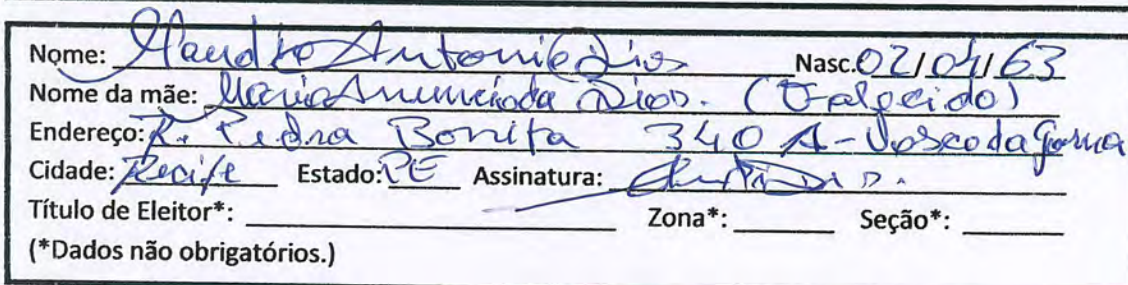 Nome: Antonio Dias Nasc. 02/04/63
Nome da mãe: Maria Anunciada Dias. (Falecido)
Endereço: R. Pedra Bonita 340 A - Vasco da Gama
Cidade: Recife Estado: PE Assinatura:
Título de Eleitor*: Zona*: Seção*:
(*Dados não obrigatórios.)